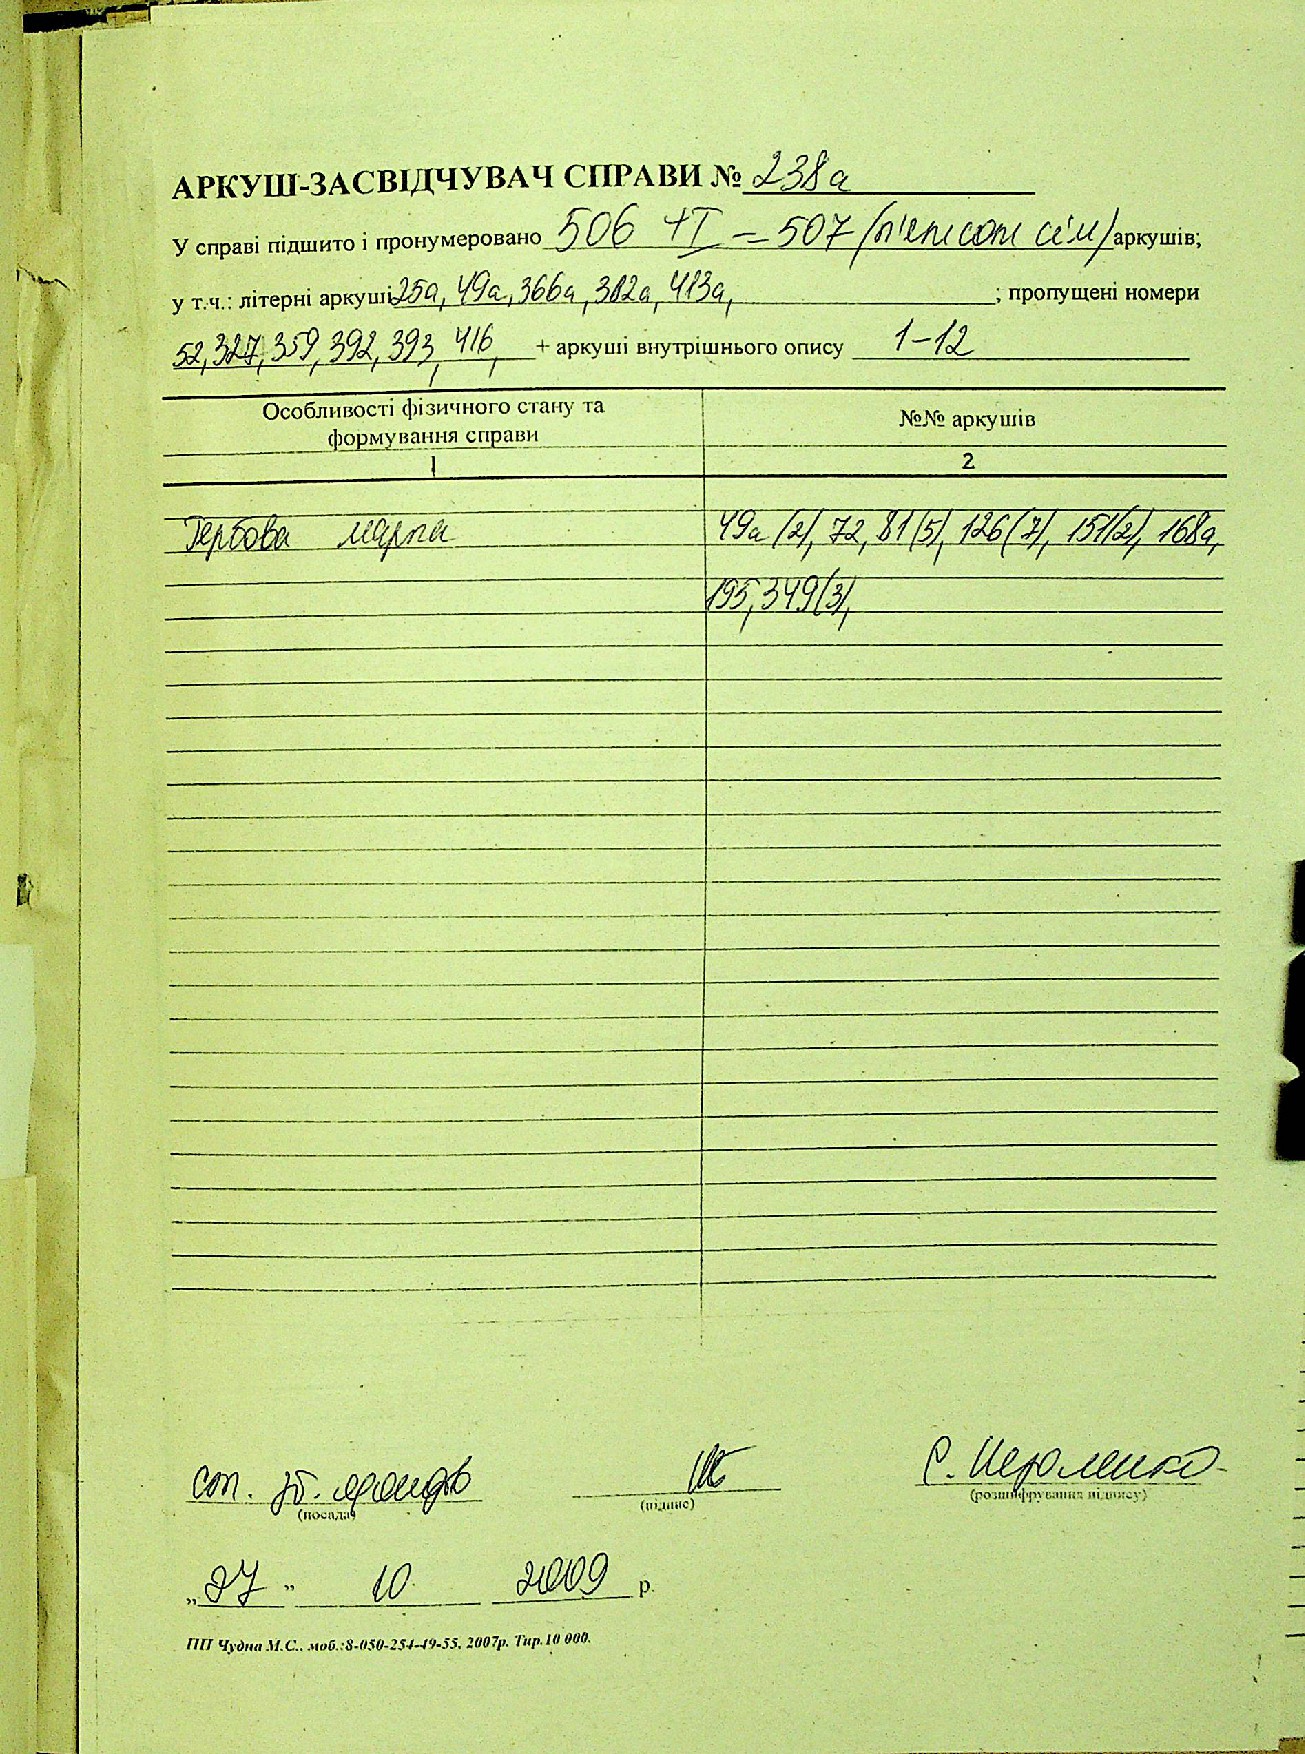 АРКУШ-ЗАСВІДЧУВАЧ СПРАВИ № 238а
У справі підшито і пронумеровано 506 +I = 507 /п'ятсот сім/ аркушів;
у т.ч.: літерні аркуші 25а, 49а, 366а, 382а, 413а, ; пропущені номери
52, 327, 359, 392, 393, 416, + аркуші внутрішнього опису 1-12
Особливості фізичного стану та №№ аркушів
формування справи
1 2
Гербова марка 49а (2), 72, 81(5), 126(7), 151(2), 168а,
195, 349(3),
ст. зб. фондів
(посада) (підпис) (розшифрування підпису)
„27" 10 2009 р.
ПП Чудна М.С., моб.:8-050-254-49-55, 2007р. Тир.10 000.